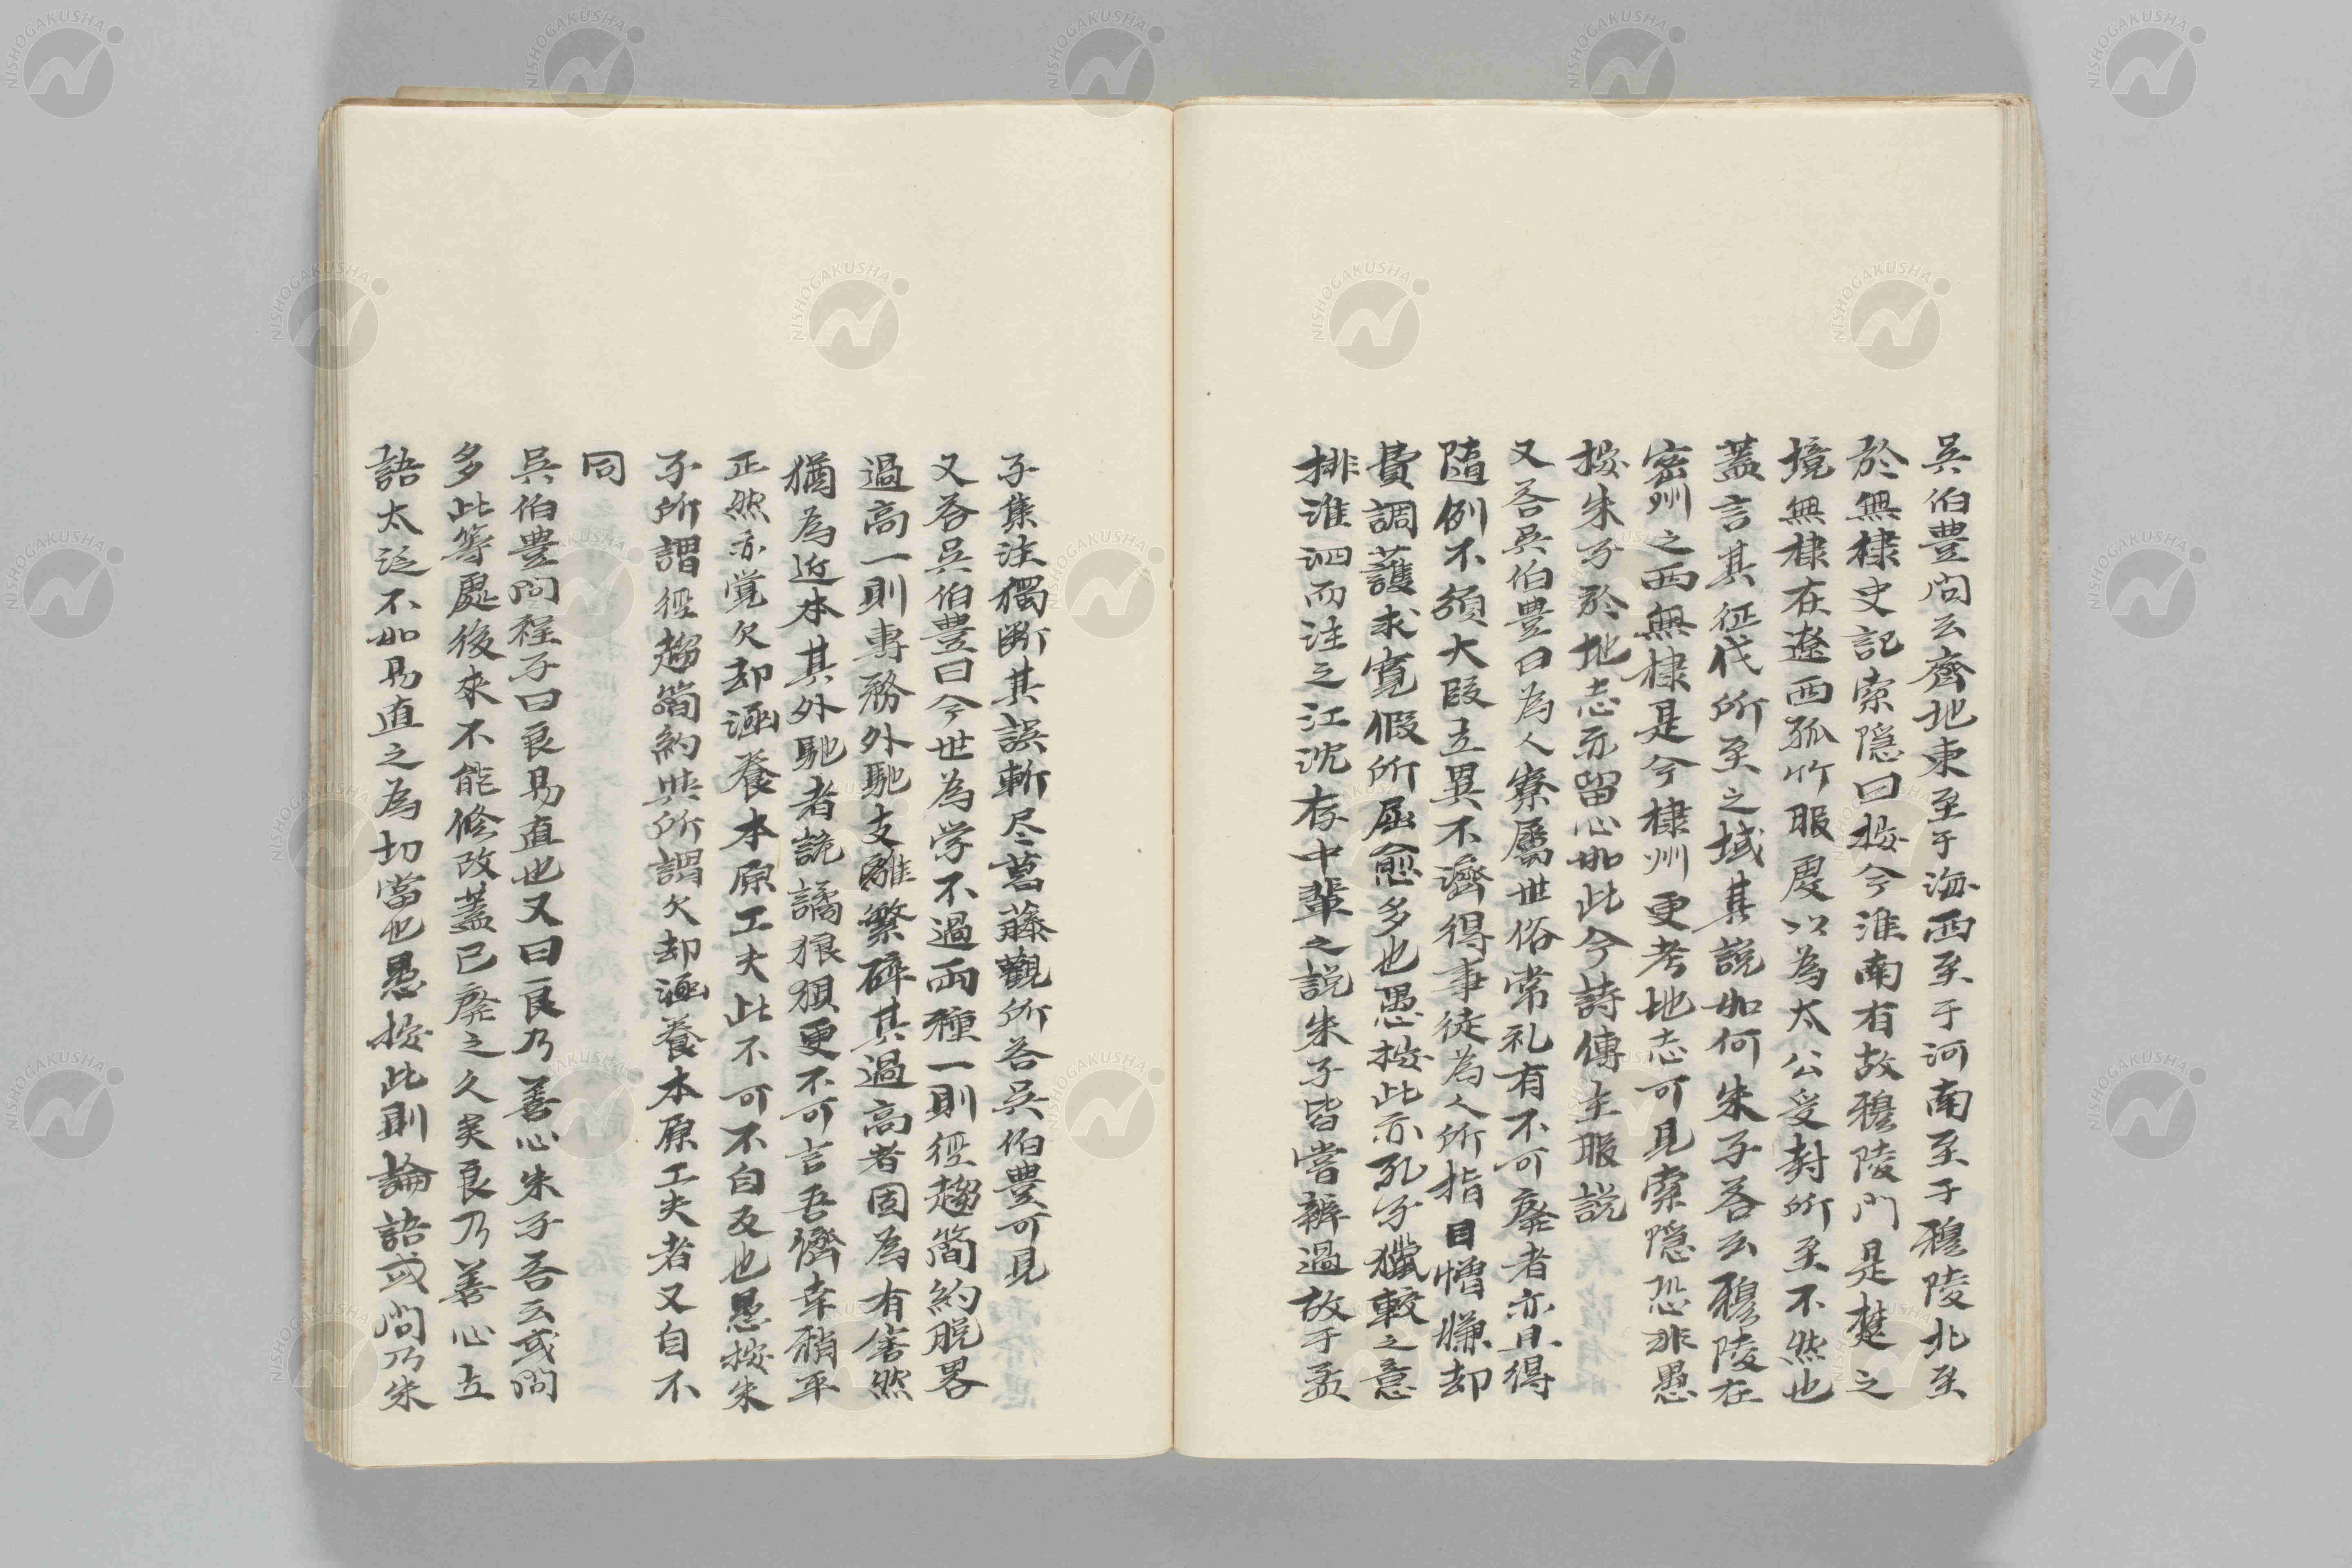 吳伯豊問云齊地東至于海西至于河南至于穆陵北至
於無棣史記索隠曰按今淮南有故穆陵門是楚之
境無棣在遼西孤竹服虔以為太公受封所至不然也
蓋言其征伐所至之域其説如何朱子荅云穆陵在
密州之西無棣是今棣州更考地志可見索隠恐非愚
按朱子於地志亦留心如此今詩傳主服説
又荅吳伯豊曰為人寮属世俗常礼有不可廢者亦且得
隨例不須大段立異不濟得事徒為人所指目憎嫌却
費調護求寛假所屈愈多也愚按此亦孔子獵較之意
排淮泗而注之江沈存中輩之説朱子皆嘗辨過故于孟
子集注獨断其誤斬尽葛藤觀所荅吳伯豊可見
又荅吳伯豊曰今世為学不過兩種一則徑趨简約脱畧
過高一則專務外馳支離繁碎其過高者固為有害然
猶為近本其外馳者詭譎狼狽更不可言吾儕幸稍平
正然亦覚欠却涵養本原工夫此不可不自反也愚按朱
子所謂徑趨简約與所謂欠却涵養本原工夫者又自不
同
吳伯豊問程子曰良易直也又曰良乃善心朱子荅云或問
多此等處後來不能修改蓋已廢之久矣良乃善心立
語太泛不如易直之為切當也愚按此則論語或問乃朱